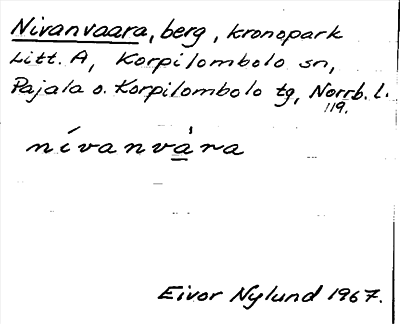 Nivanvaara, berg, kronopark
Litt. A, Korpilombolo sn,
Pajala o. Korpilombolo tg, Norrb. l.
119.
nívanvàra
Eivor Nylund 1967.